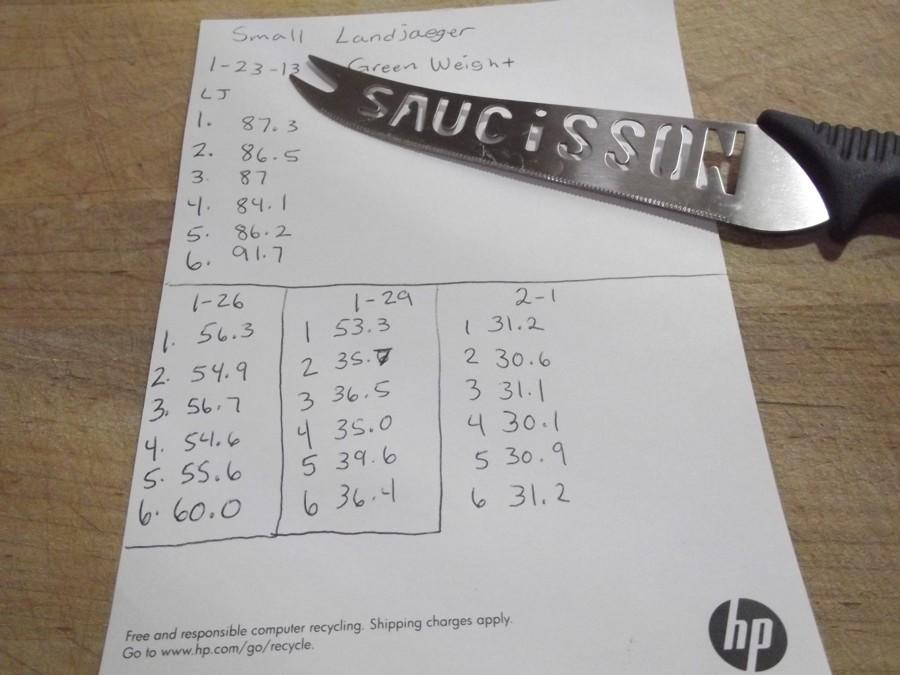 Small Landjaeger
1-23-13 Green Weight
LJ
1. 87.3
2. 86.5
3. 87
4. 84.1
5. 86.2
6. 91.7
SAUCiSSON
1-26
1. 56.3
2. 54.9
3. 56.7
4. 54.6
5. 55.6
6. 60.0
1-29
1 53.3
2 35.7
3 36.5
4 35.0
5 39.6
6 36.4
2-1
1 31.2
2 30.6
3 31.1
4 30.1
5 30.9
6 31.2
Free and responsible computer recycling. Shipping charges apply.
Go to www.hp.com/go/recycle.
hp